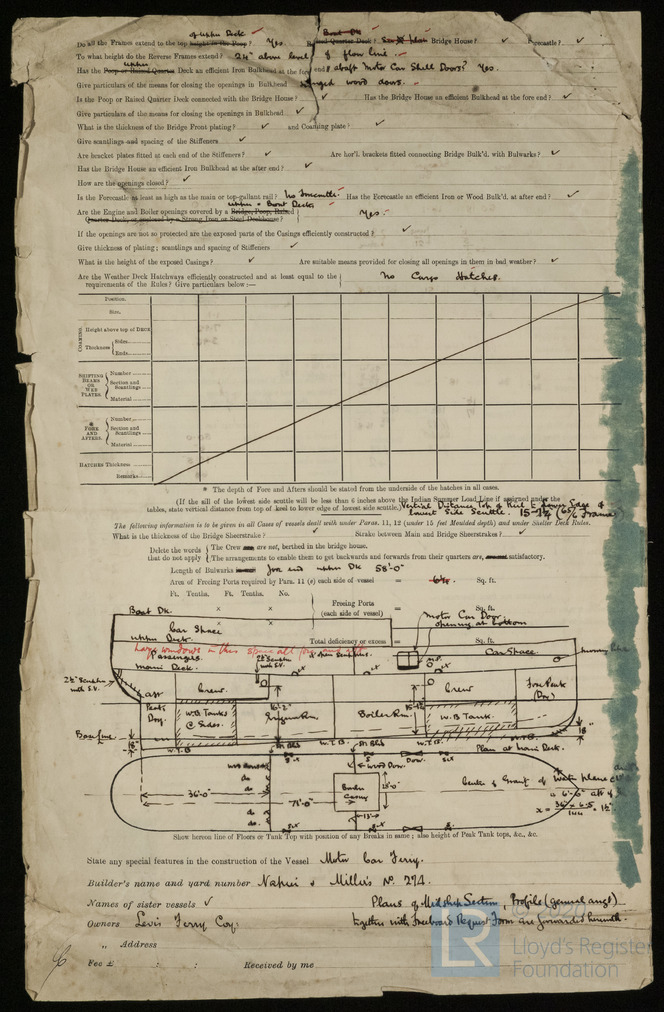 of upper Deck Boat Dk
Do all the Frames extend to the top height in the Poop? Yes Raised Quarter Deck? Bridge House? Forecastle?
To what height do the Reverse Frames extend? 24" above level of floor line
Has the Poop or Raised Quarter upper Deck an efficient Iron Bulkhead at the fore end & abaft Motor Car Shell Doors? Yes.
Give particulars of the means for closing the openings in Bulkhead hinged wood doors.
Is the Poop or Raised Quarter Deck connected with the Bridge House? Has the Bridge House an efficient Bulkhead at the fore end?
Give particulars of the means for closing the openings in Bulkhead
What is the thickness of the Bridge Front plating? and Coaming plate?
Give scantlings and spacing of the Stiffeners
Are bracket plates fitted at each end of the Stiffeners? Are hor'l. brackets fitted connecting Bridge Bulk'd. with Bulwarks?
Has the Bridge House an efficient Iron Bulkhead at the after end?
How are the openings closed?
Is the Forecastle at least as high as the main or top-gallant rail? No Forecastle Has the Forecastle an efficient Iron or Wood Bulk'd. at after end?
upper & Boat Decks
Are the Engine and Boiler openings covered by a Bridge, Poop, Raised
Quarter Deck, or enclosed by a Strong Iron or Steel Deckhouse? Yes.
If the openings are not so protected are the exposed parts of the Casings efficiently constructed?
Give thickness of plating; scantlings and spacing of Stiffeners
What is the height of the exposed Casings? Are suitable means provided for closing all openings in them in bad weather?
Are the Weather Deck Hatchways efficiently constructed and at least equal to the
requirements of the Rules? Give particulars below:— No Cargo Hatches.
Position.
Size.
COAMING. Height above top of DECK
Thickness { Sides
Ends
SHIFTING BEAMS OR WEB PLATES { Number
Section and Scantlings
Material
* FORE AND AFTERS. { Number
Section and Scantlings
Material
HATCHES Thickness
Remarks
* The depth of Fore and Afters should be stated from the underside of the hatches in all cases.
(If the sill of the lowest side scuttle will be less than 6 inches above the Indian Summer Load Line if assigned under the
tables, state vertical distance from top of keel to lower edge of lowest side scuttle.) Vertical Distance Top of Keel to Lower Edge of
lowest Side Scuttle. 15-7½ (65½ Frame)
The following information is to be given in all Cases of vessels dealt with under Paras. 11, 12 (under 15 feet Moulded depth) and under Shelter Deck Rules.
What is the thickness of the Bridge Sheerstrake? Strake between Main and Bridge Sheerstrakes?
Delete the words { The Crew are not, berthed in the bridge house.
that do not apply { The arrangements to enable them to get backwards and forwards from their quarters are, satisfactory.
Length of Bulwarks fore end upper Dk 58'-0"
Area of Freeing Ports required by Para. 11 (e) each side of vessel = Sq. ft.
Ft. Tenths. Ft. Tenths. No.
× × Freeing Ports
(each side of vessel) = Sq. ft.
× ×
Total deficiency or excess = Sq. ft.
Motor Car Door
opening at bottom
Boat Dk.
Car Space
upper Deck.
Large windows in this space all fore and aft
Passengers
Main Deck.
Car Space
2½" Scuttles
with S.V.
Crew
W.B Tanks
@ Sides.
16'-2"
Engine Rm.
Boiler Rm.
Crew
W.B Tank.
Fore Peak
(Dry)
Peak
Dry.
Base Line
18"
W.T.B
W.T.B.
W.T.B.
18"
Plan at Main Deck.
36'-0"
71'-0"
Boiler
Casing
13'-0"
Wood Door.
do
do
do
Center of Gravity of water plane
a 6'-6" aft of
x = 36 × 6.5 / 144 = 1½"
Show hereon line of Floors or Tank Top with position of any Breaks in same; also height of Peak Tank tops, &c., &c.
State any special features in the construction of the Vessel Motor Car Ferry.
Builder's name and yard number Napier & Miller's No. 274.
Names of sister vessels Plans of Midship Section, Profile (general angt)
Owners Levis Ferry Coy. together with Freeboard Request Form are forwarded herewith.
" Address
Fee £ : : Received by me
© 2020
LR Lloyd's Register
Foundation